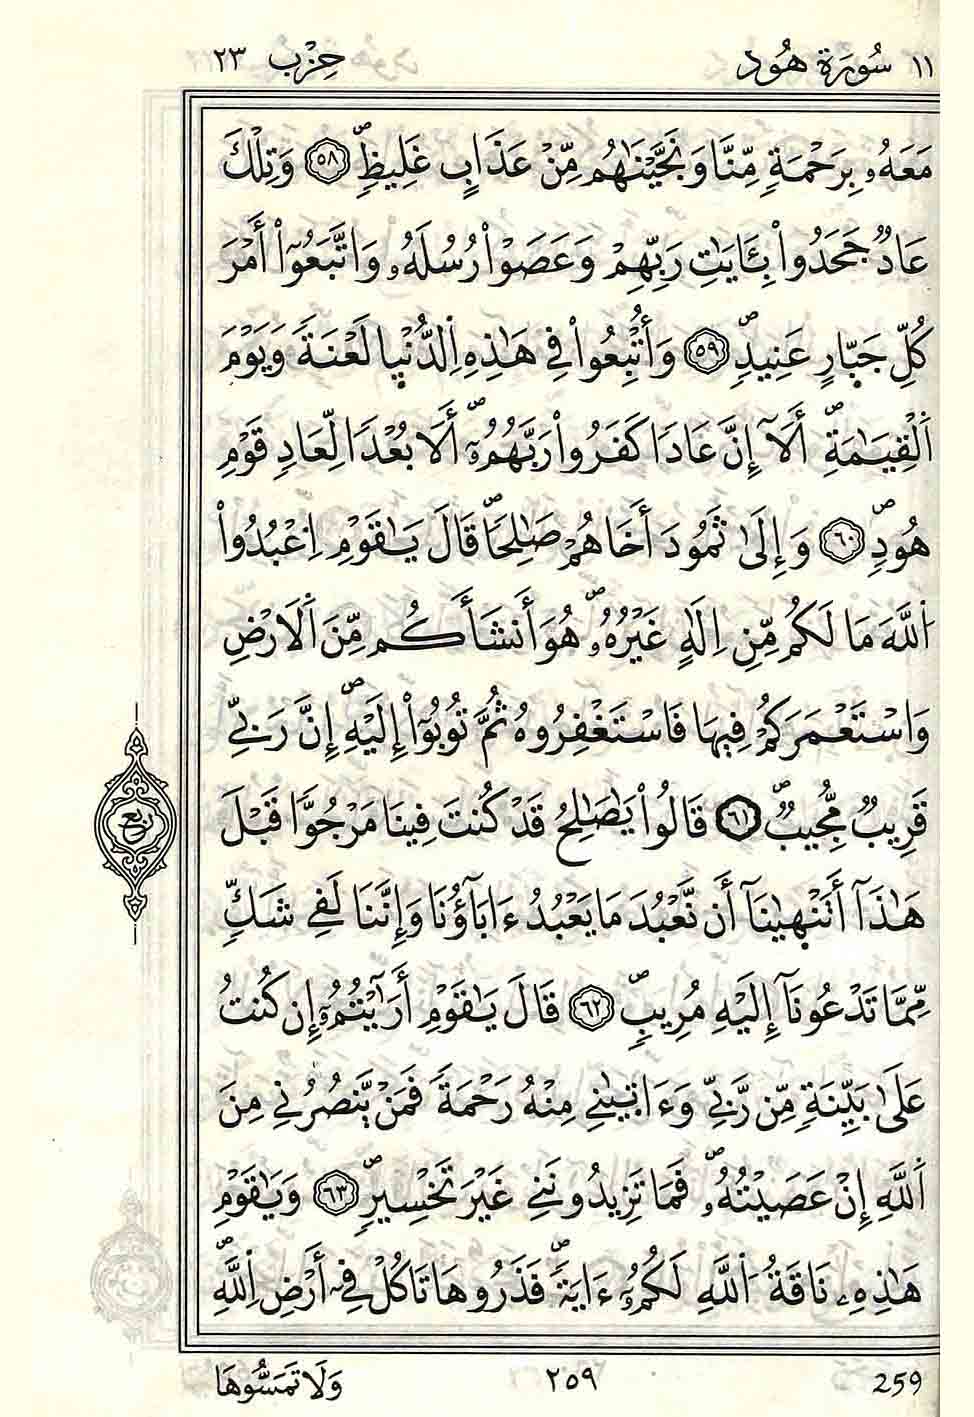 ١١ سُورَة هُود حِزْب ٢٣
مَعَهُۥ بِرَحْمَةٖ مِّنَّا وَنَجَّيْنَٰهُم مِّنْ عَذَابٍ غَلِيظٖۖ ٥٨ وَتِلْكَ
عَادٞ جَحَدُواْ بِـَٔايَٰتِ رَبِّهِمْ وَعَصَوْاْ رُسُلَهُۥ وَاتَّبَعُوٓاْ أَمْرَ
كُلِّ جَبّ۪ارٍ عَنِيدٖۖ ٥٩ وَأُتْبِعُواْ فِے هَٰذِهِ اِ۬لدُّنْي۪ا لَعْنَةٗ وَيَوْمَ
اَ۬لْقِيَٰمَةِۖ أَلَآ إِنَّ عَادٗا كَفَرُواْ رَبَّهُمُۥٓۖ أَلَا بُعْدٗا لِّعَادٖ قَوْمِ
هُودٖۖ ٦٠ وَإِلَىٰ ثَمُودَ أَخَاهُمْ صَٰلِحٗاۖ قَالَ يَٰقَوْمِ اِ۟عْبُدُواْ
اُ۬للَّهَ مَا لَكُم مِّنِ اِلَٰهٍ غَيْرُهُۥۖ هُوَ أَنشَأَكُم مِّنَ اَ۬لَارْضِ
وَاسْتَعْمَرَكُمْ فِيهَا فَاسْتَغْفِرُوهُ ثُمَّ تُوبُوٓاْ إِلَيْهِۖ إِنَّ رَبِّے
قَرِيبٞ مُّجِيبٞۖ ٦١ قَالُواْ يَٰصَٰلِحُ قَدْ كُنتَ فِينَا مَرْجُوّٗا قَبْلَ
هَٰذَآ أَتَنْه۪يٰنَآ أَن نَّعْبُدَ مَا يَعْبُدُ ءَابَآؤُنَا وَإِنَّنَا لَفِے شَكّٖ
مِّمَّا تَدْعُونَآ إِلَيْهِ مُرِيبٖۖ ٦٢ قَالَ يَٰقَوْمِ أَرَٰٓيْتُمُۥٓ إِن كُنتُ
عَلَىٰ بَيِّنَةٖ مِّن رَّبِّے وَءَات۪يٰنِے مِنْهُ رَحْمَةٗ فَمَنْ يَّنصُرُنِے مِنَ
اَ۬للَّهِ إِنْ عَصَيْتُهُۥۖ فَمَا تَزِيدُونَنِے غَيْرَ تَخْسِيرٖۖ ٦٣ وَيَٰقَوْمِ
هَٰذِهِۦ نَاقَةُ اُ۬للَّهِ لَكُمُۥٓ ءَايَةٗۖ فَذَرُوهَا تَاكُلْ فِےٓ أَرْضِ اِ۬للَّهِۖ
ربع
وَلَا تَمَسُّوهَا ٢٥٩ 259